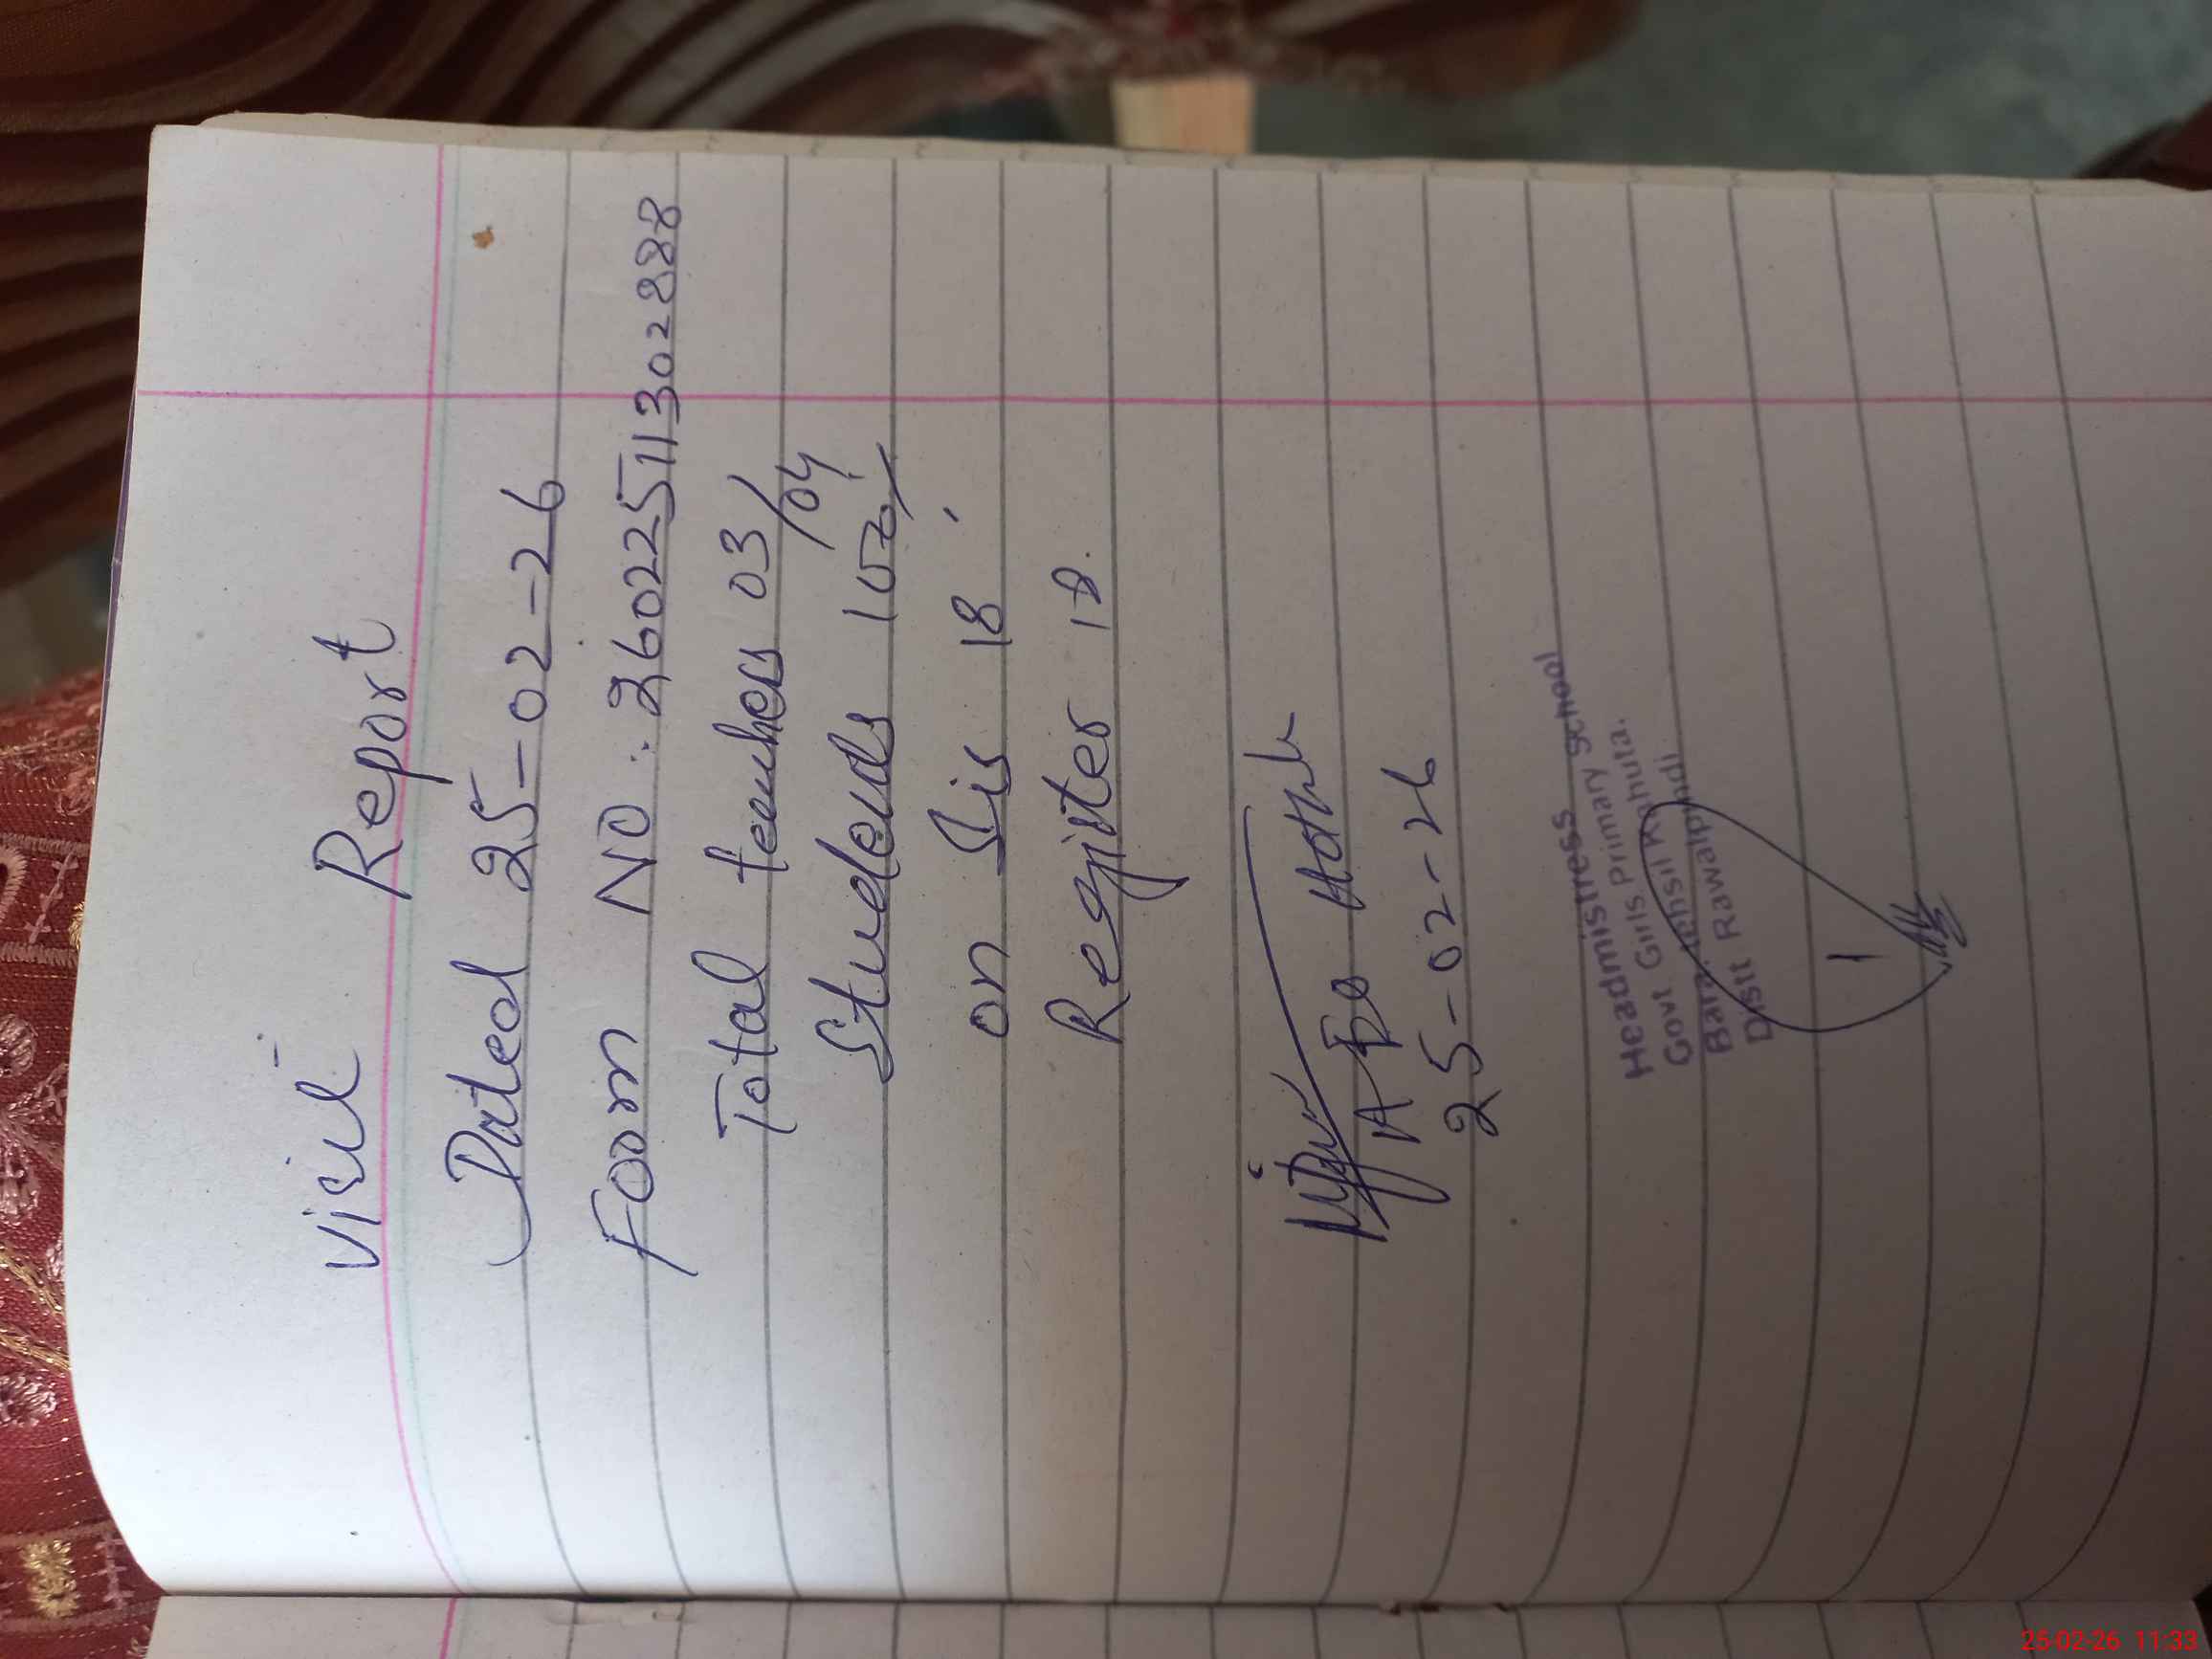 Visit Report
Dated 25-02-26
Foom NO: 260225113028888
Total teachers 03/04
Students
on Sis 18
Register 18.
25-02-26
Headmistress
Govt Girls Primary School
Tehsil Kahuta.
Distt Rawalpindi
25-02-26 11:33